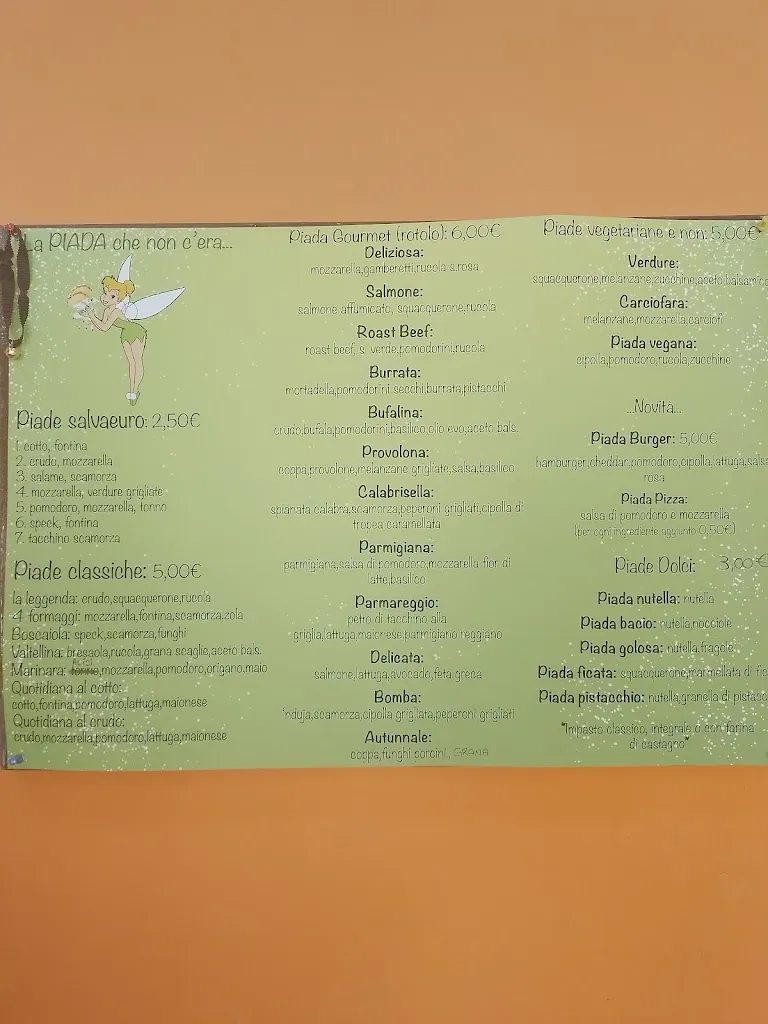 La PIADA che non c'era...
Piade salvaeuro: 2,50€
1. cotto, fontina
2. crudo, mozzarella
3. salame, scamorza
4. mozzarella, verdure grigliate
5. pomodoro, mozzarella, tonno
6. speck, fontina
7. tacchino scamorza
Piade classiche: 5,00€
la leggenda: crudo,squacquerone,rucola
4 formaggi: mozzarella,fontina,scamorza,zola
Boscaiola: speck,scamorza,funghi
Valtellina: bresaola,rucola,grana scaglie,aceto bals.
ALICI
Marinara: tonno,mozzarella,pomodoro,origano,maio
Quotidiana al cotto:
cotto,fontina,pomodoro,lattuga,maionese
Quotidiana al crudo:
crudo,mozzarella,pomodoro,lattuga,maionese
Piada Gourmet (rotolo): 6,00€
Deliziosa:
mozzarella,gamberetti,rucola s.rosa
Salmone:
salmone affumicato, squacquerone,rucola
Roast Beef:
roast beef, s. verde,pomodorini,rucola
Burrata:
mortadella,pomodorini secchi,burrata,pistacchi
Bufalina:
crudo,bufala,pomodorini,basilico,olio evo,aceto bals.
Provolona:
coppa,provolone,melanzane grigliate,salsa,basilico
Calabrisella:
spianata calabra,scamorza,peperoni grigliati,cipolla di
tropea caramellata
Parmigiana:
parmigiana,salsa di pomodoro,mozzarella fior di
latte,basilico
Parmareggio:
petto di tacchino alla
griglia,lattuga,maionese,parmigiano reggiano
Delicata:
salmone,lattuga,avocado,feta greca
Bomba:
'nduja,scamorza,cipolla grigliata,peperoni grigliati
Autunnale:
coppa,funghi porcini, GRANA
Piade vegetariane e non: 5,00€
Verdure:
squacquerone,melanzane,zucchine,aceto balsamico
Carciofara:
melanzane,mozzarella,carciofi
Piada vegana:
cipolla,pomodoro,rucola,zucchine
...Novità...
Piada Burger: 5,00€
hamburger,cheddar,pomodoro,cipolla,lattuga,salsa
rosa
Piada Pizza:
salsa di pomodoro e mozzarella
(per ogni ingrediente aggiunto 0,50€)
Piade Dolci: 3,00€
Piada nutella: nutella
Piada bacio: nutella,nocciole
Piada golosa: nutella,fragole
Piada ficata: squacquerone,marmellata di fic
Piada pistacchio: nutella,granella di pistacc
"Impasto classico, integrale o con farina
di castagno"